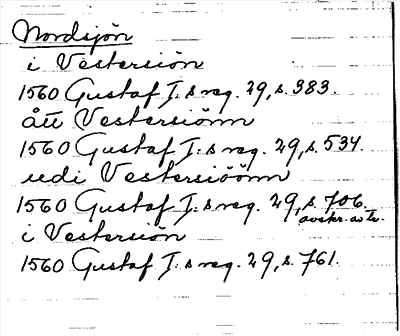 Nordsjön
i Vestersiön
1560 Gustaf I:s reg. 29, s. 383.
ått Vestersiönn
1560 Gustaf I:s reg. 29, s. 534.
udi Vestersiöönn
1560 Gustaf I:s reg. 29, s. 706.
avskr. av tr.
i Vestersiön
1560 Gustaf I:s reg. 29, s. 761.